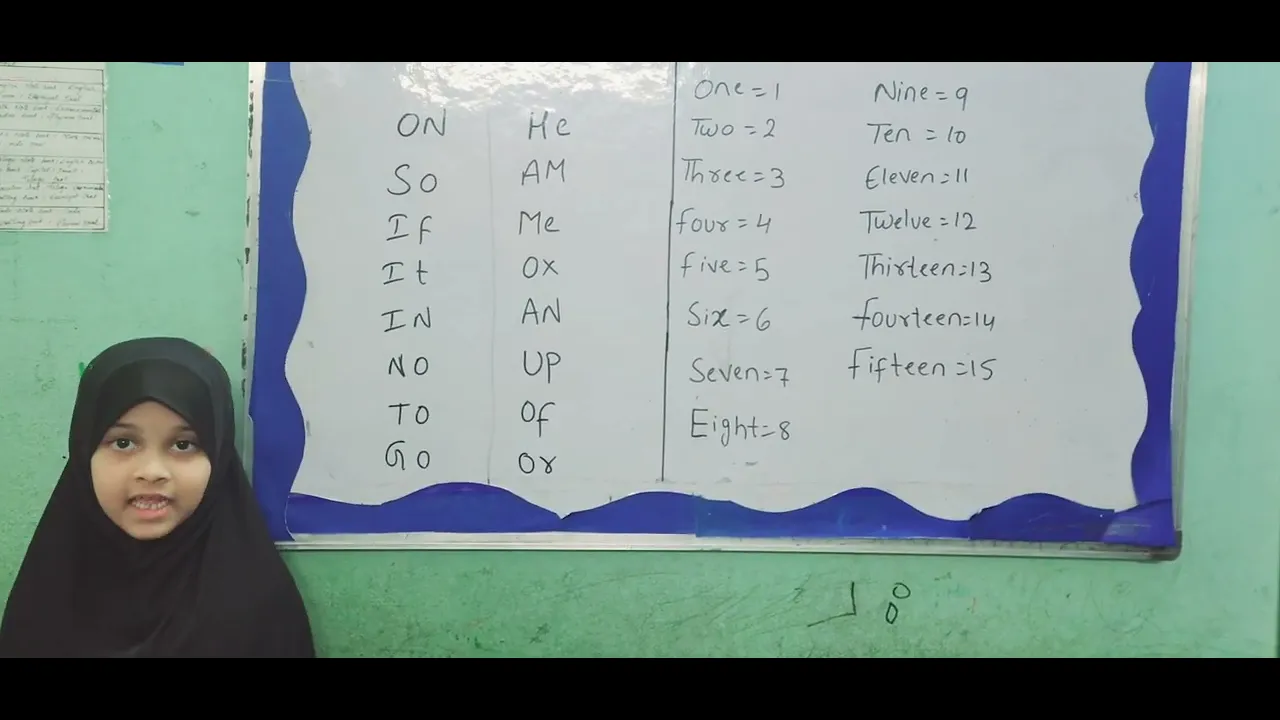 ON
So
If
It
IN
NO
TO
GO
He
AM
Me
OX
AN
UP
Of
Or
One = 1
Two = 2
Three = 3
four = 4
five = 5
Six = 6
Seven = 7
Eight = 8
Nine = 9
Ten = 10
Eleven = 11
Twelve = 12
Thirteen = 13
fourteen = 14
Fifteen = 15